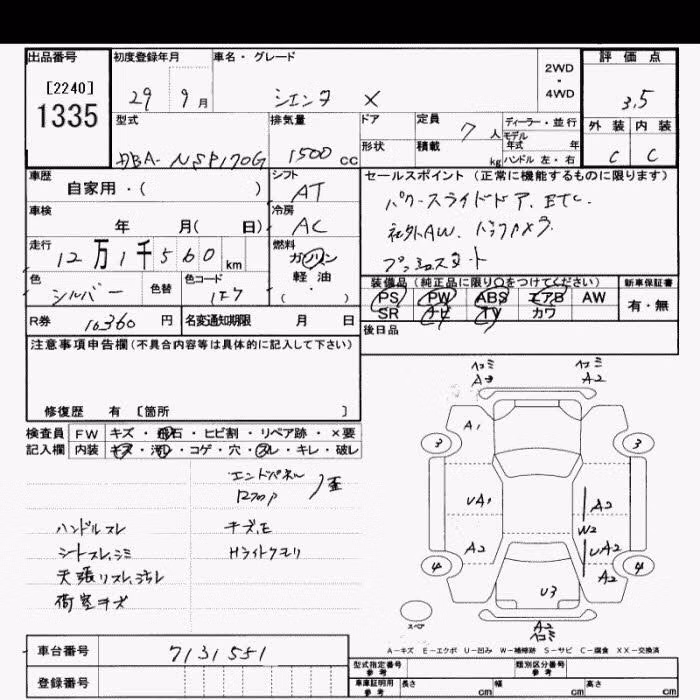 出品番号 初度登録年月 車名・グレード 2WD・4WD 評価点
[2240]
1335
29 9月 シエンタ X 3.5
型式 排気量 ドア 定員 7人 ディーラー・並行 外装 内装
モデル年式 年
DBA-NSP170G 1500cc 形状 積載 kg ハンドル 左・右 C C
車歴 シフト セールスポイント(正常に機能するものに限ります)
自家用・( ) AT パワースライドドア、ETC、
車検 冷房
年 月( 日) AC 社外AW、バックカメラ
走行 燃料
12万1千560km ガソリン プッシュスタート
色 色替 色コード 軽・油
シルバー 1F7 ( )
装備品(純正品に限り○をつけてください) 新車保証書
PS PW ABS エアB AW 有・無
SR ナビ TV カワ
R券 16,360円 名変通知期限 月 日
後日品
注意事項申告欄(不具合内容等は具体的に記入して下さい)
修復歴 有 [箇所 ]
検査員 FW キズ・飛石・ヒビ割・リペア跡・×要
記入欄 内装 キズ・汚レ・コゲ・穴・スレ・キレ・破レ
エンドパネル
フロア 歪
ハンドルスレ キズ、E
シートスレ、シミ Hライトクモリ
天張リスレ、ヨゴレ
荷室キズ
ヘコミ ヘコミ
A3 A2
A1
3 3
UA1 A2
W2
A2 UA2
4 A2 4
U3
スペア A2
ヘコミ
A−キズ E−エクボ U−凹み W−補修跡 S−サビ C−腐食 XX−交換済
車台番号 7131551
登録番号
型式指定番号 参考 類別区分番号 参考
車庫証明用 参考 長さ cm 幅 cm 高さ cm